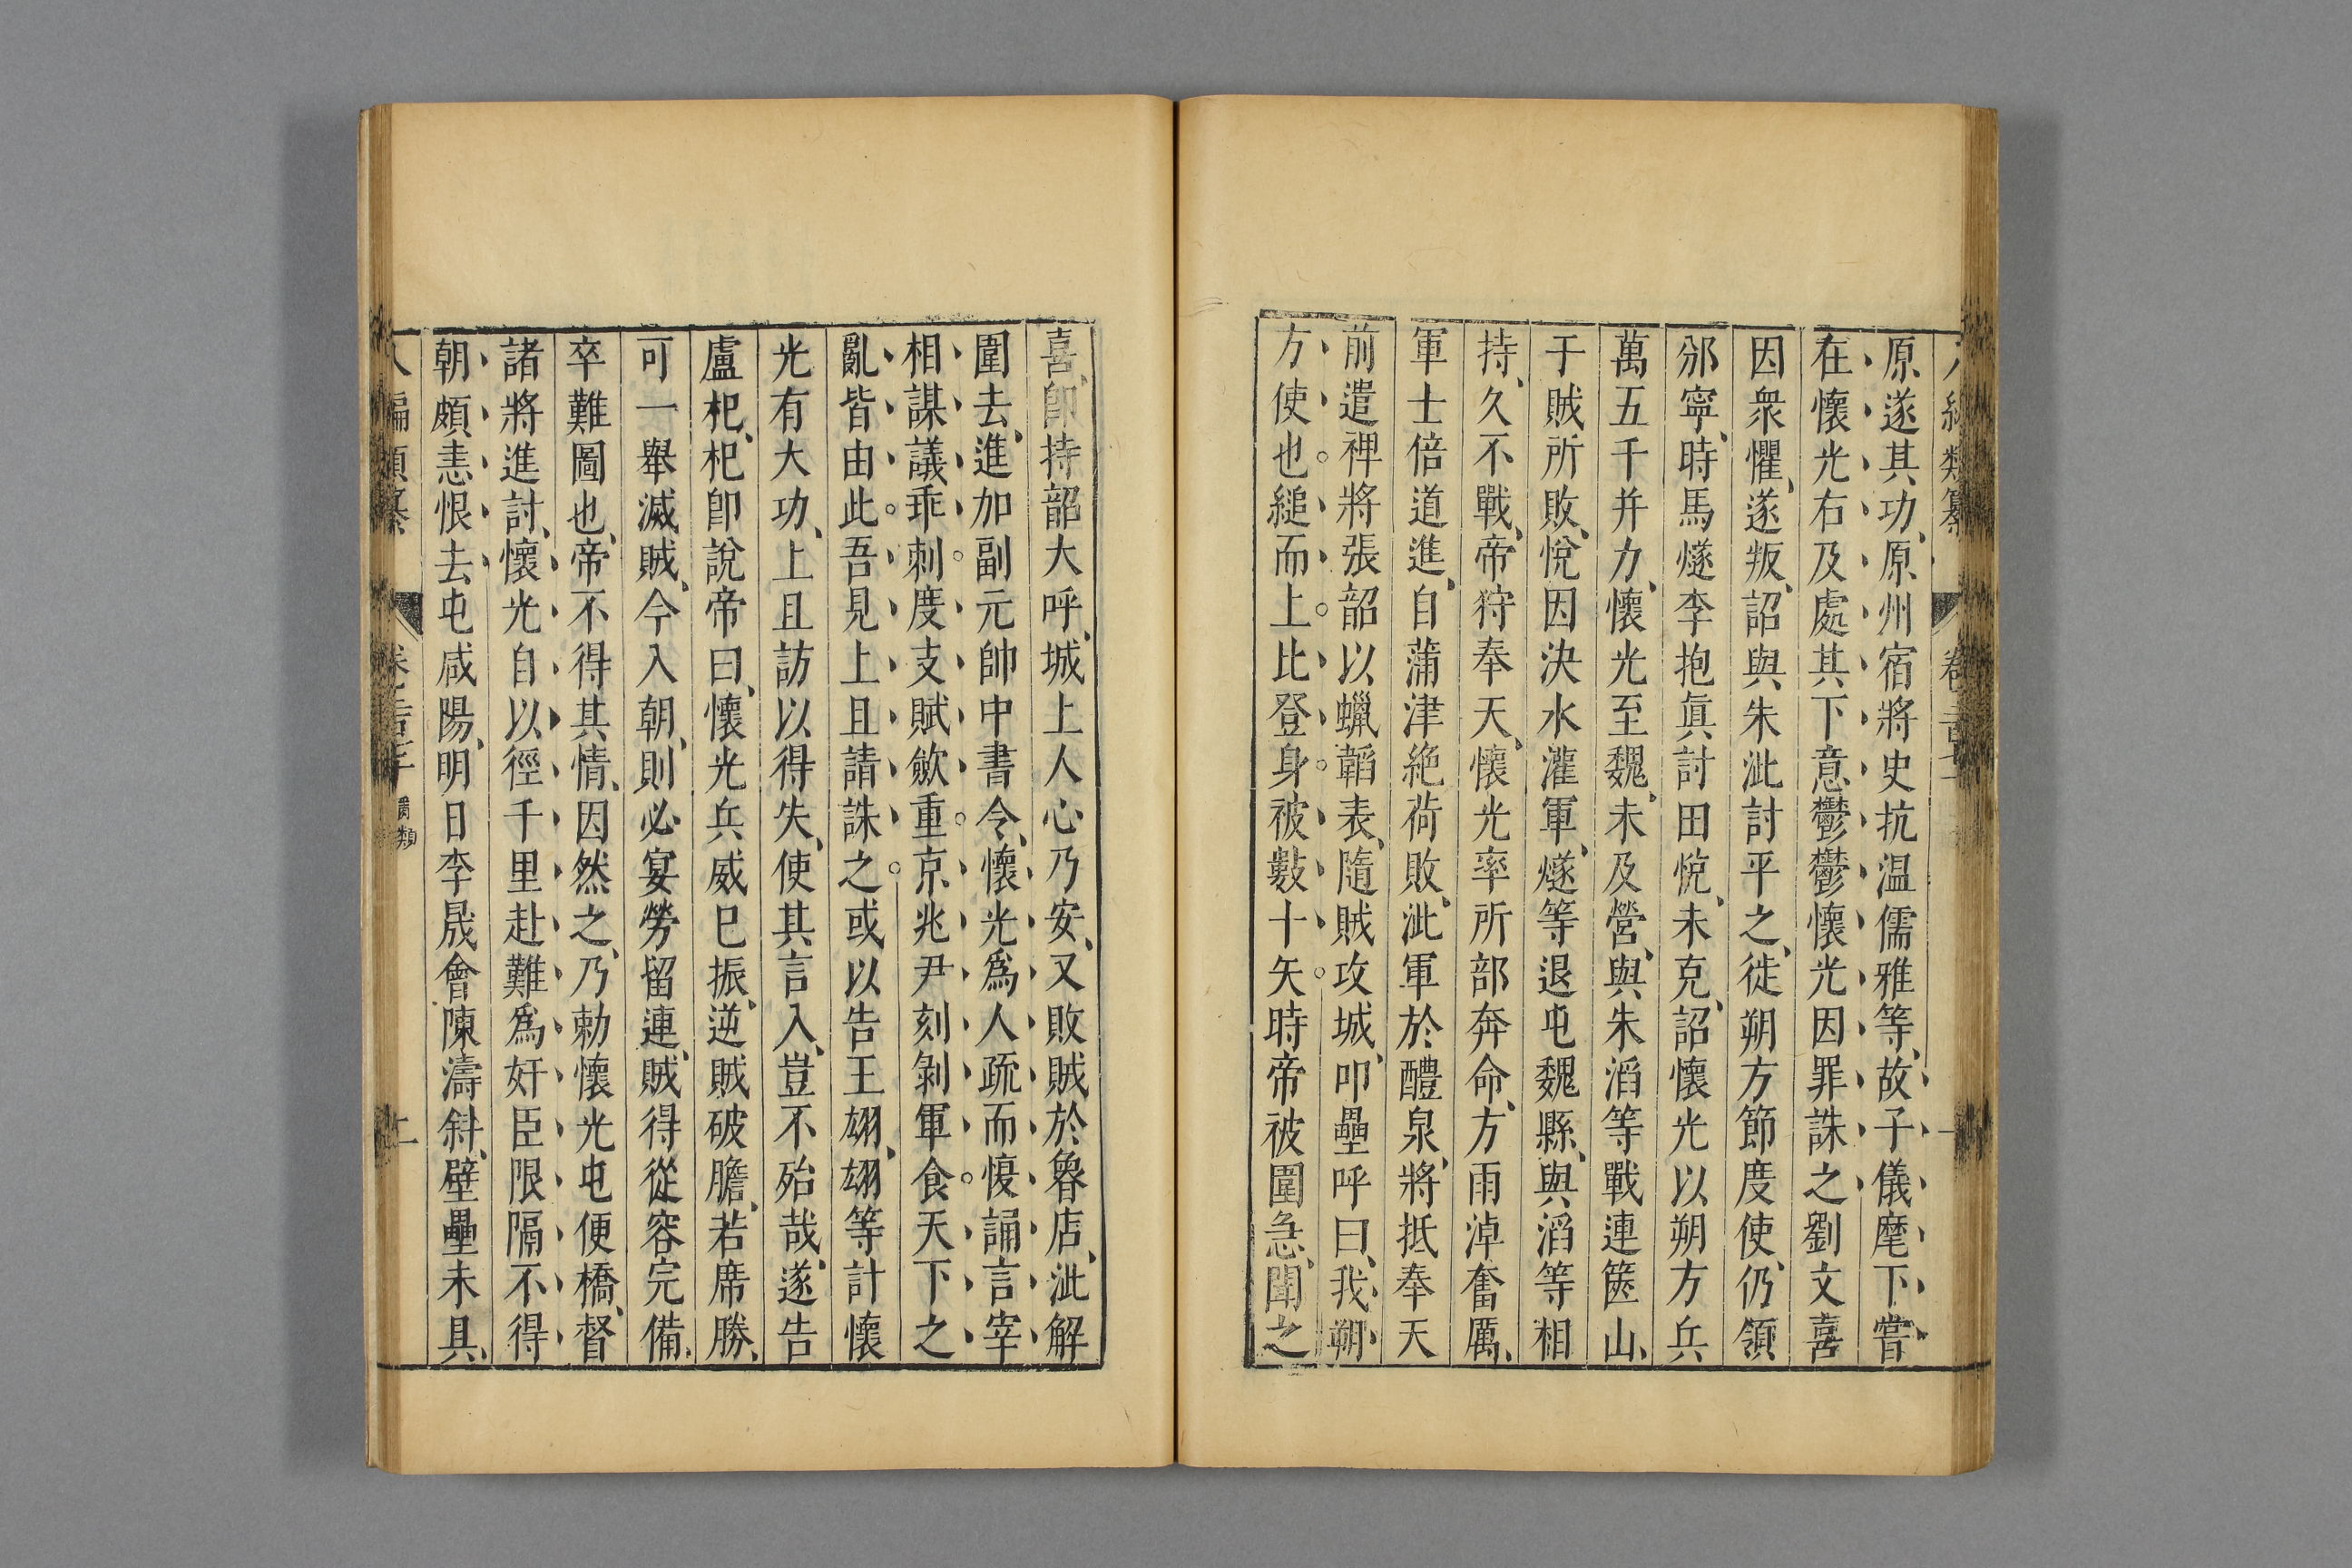 原遂其功、原州宿將史抗温儒雅等、故子儀麾下、嘗
在懷光右、及處其下、意鬱鬱、懷光因罪誅之、劉文喜
因衆懼、遂叛、詔與朱泚討平之、徙朔方節度使、仍領
邠寧、時馬燧李抱眞討田悅、未克、詔懷光以朔方兵
萬五千并力、懷光至魏、未及營、與朱滔等戰連篋山、
于賊所敗、悅因決水灌軍、燧等退屯魏縣、與滔等相
持、久不戰、帝狩奉天、懷光率所部奔命、方雨淖奮厲、
軍士倍道進、自蒲津絶荷敗、泚軍於醴泉、將抵奉天
前遣裨將張韶以蠟韜表、隨賊攻城、叩壘呼曰、我朔
方使也。縋而上。比登身。被數十矢。時帝被圍急、聞之
喜、卽持韶大呼、城上人心乃安、又敗賊於魯店、泚解
圍去、進加副元帥中書令、懷光爲人疏而愎、誦言宰
相謀議乖刺。度支賦斂重。京兆尹刻剝軍食。天下之
亂皆由此。吾見上且請誅之。或以告王翃、翃等計懷
光有大功、上且訪以得失、使其言入、豈不殆哉、遂告
盧杞、杞卽說帝曰、懷光兵威已振、逆賊破膽、若席勝、
可一舉滅賊、今入朝、則必宴勞留連、賊得從容完備、
卒難圖也、帝不得其情、因然之、乃勅懷光屯便橋、督
諸將進討、懷光自以徑千里赴難、爲奸臣限隔不得
朝、頗恚恨去、屯咸陽、明日李晟會陳濤斜、壁壘未具、